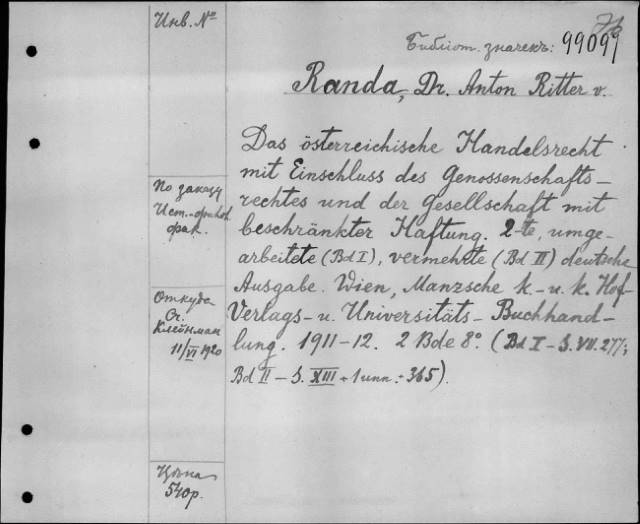 Инв. №
Библіот. значекъ: 99099
Randa, Dr. Anton Ritter v.
Das österreichische Handelsrecht
mit Einschluss des Genossenschafts-
rechtes und der Gesellschaft mit
beschränkter Haftung. 2-te, umge-
arbeitete (Bd I), vermehrte (Bd II) deutsche
Ausgabe. Wien, Manzsche k.-u. k. Hof-
Verlags- u. Universitäts- Buchhand-
lung. 1911-12. 2 Bde 8°. (Bd I - S. VII. 277;
Bd II - S. XIII + 1 unn. + 365).
По заказу
Ист.-
фак.
Откуда
От
Клейнман
11/VI 1920
Цѣна
540р.